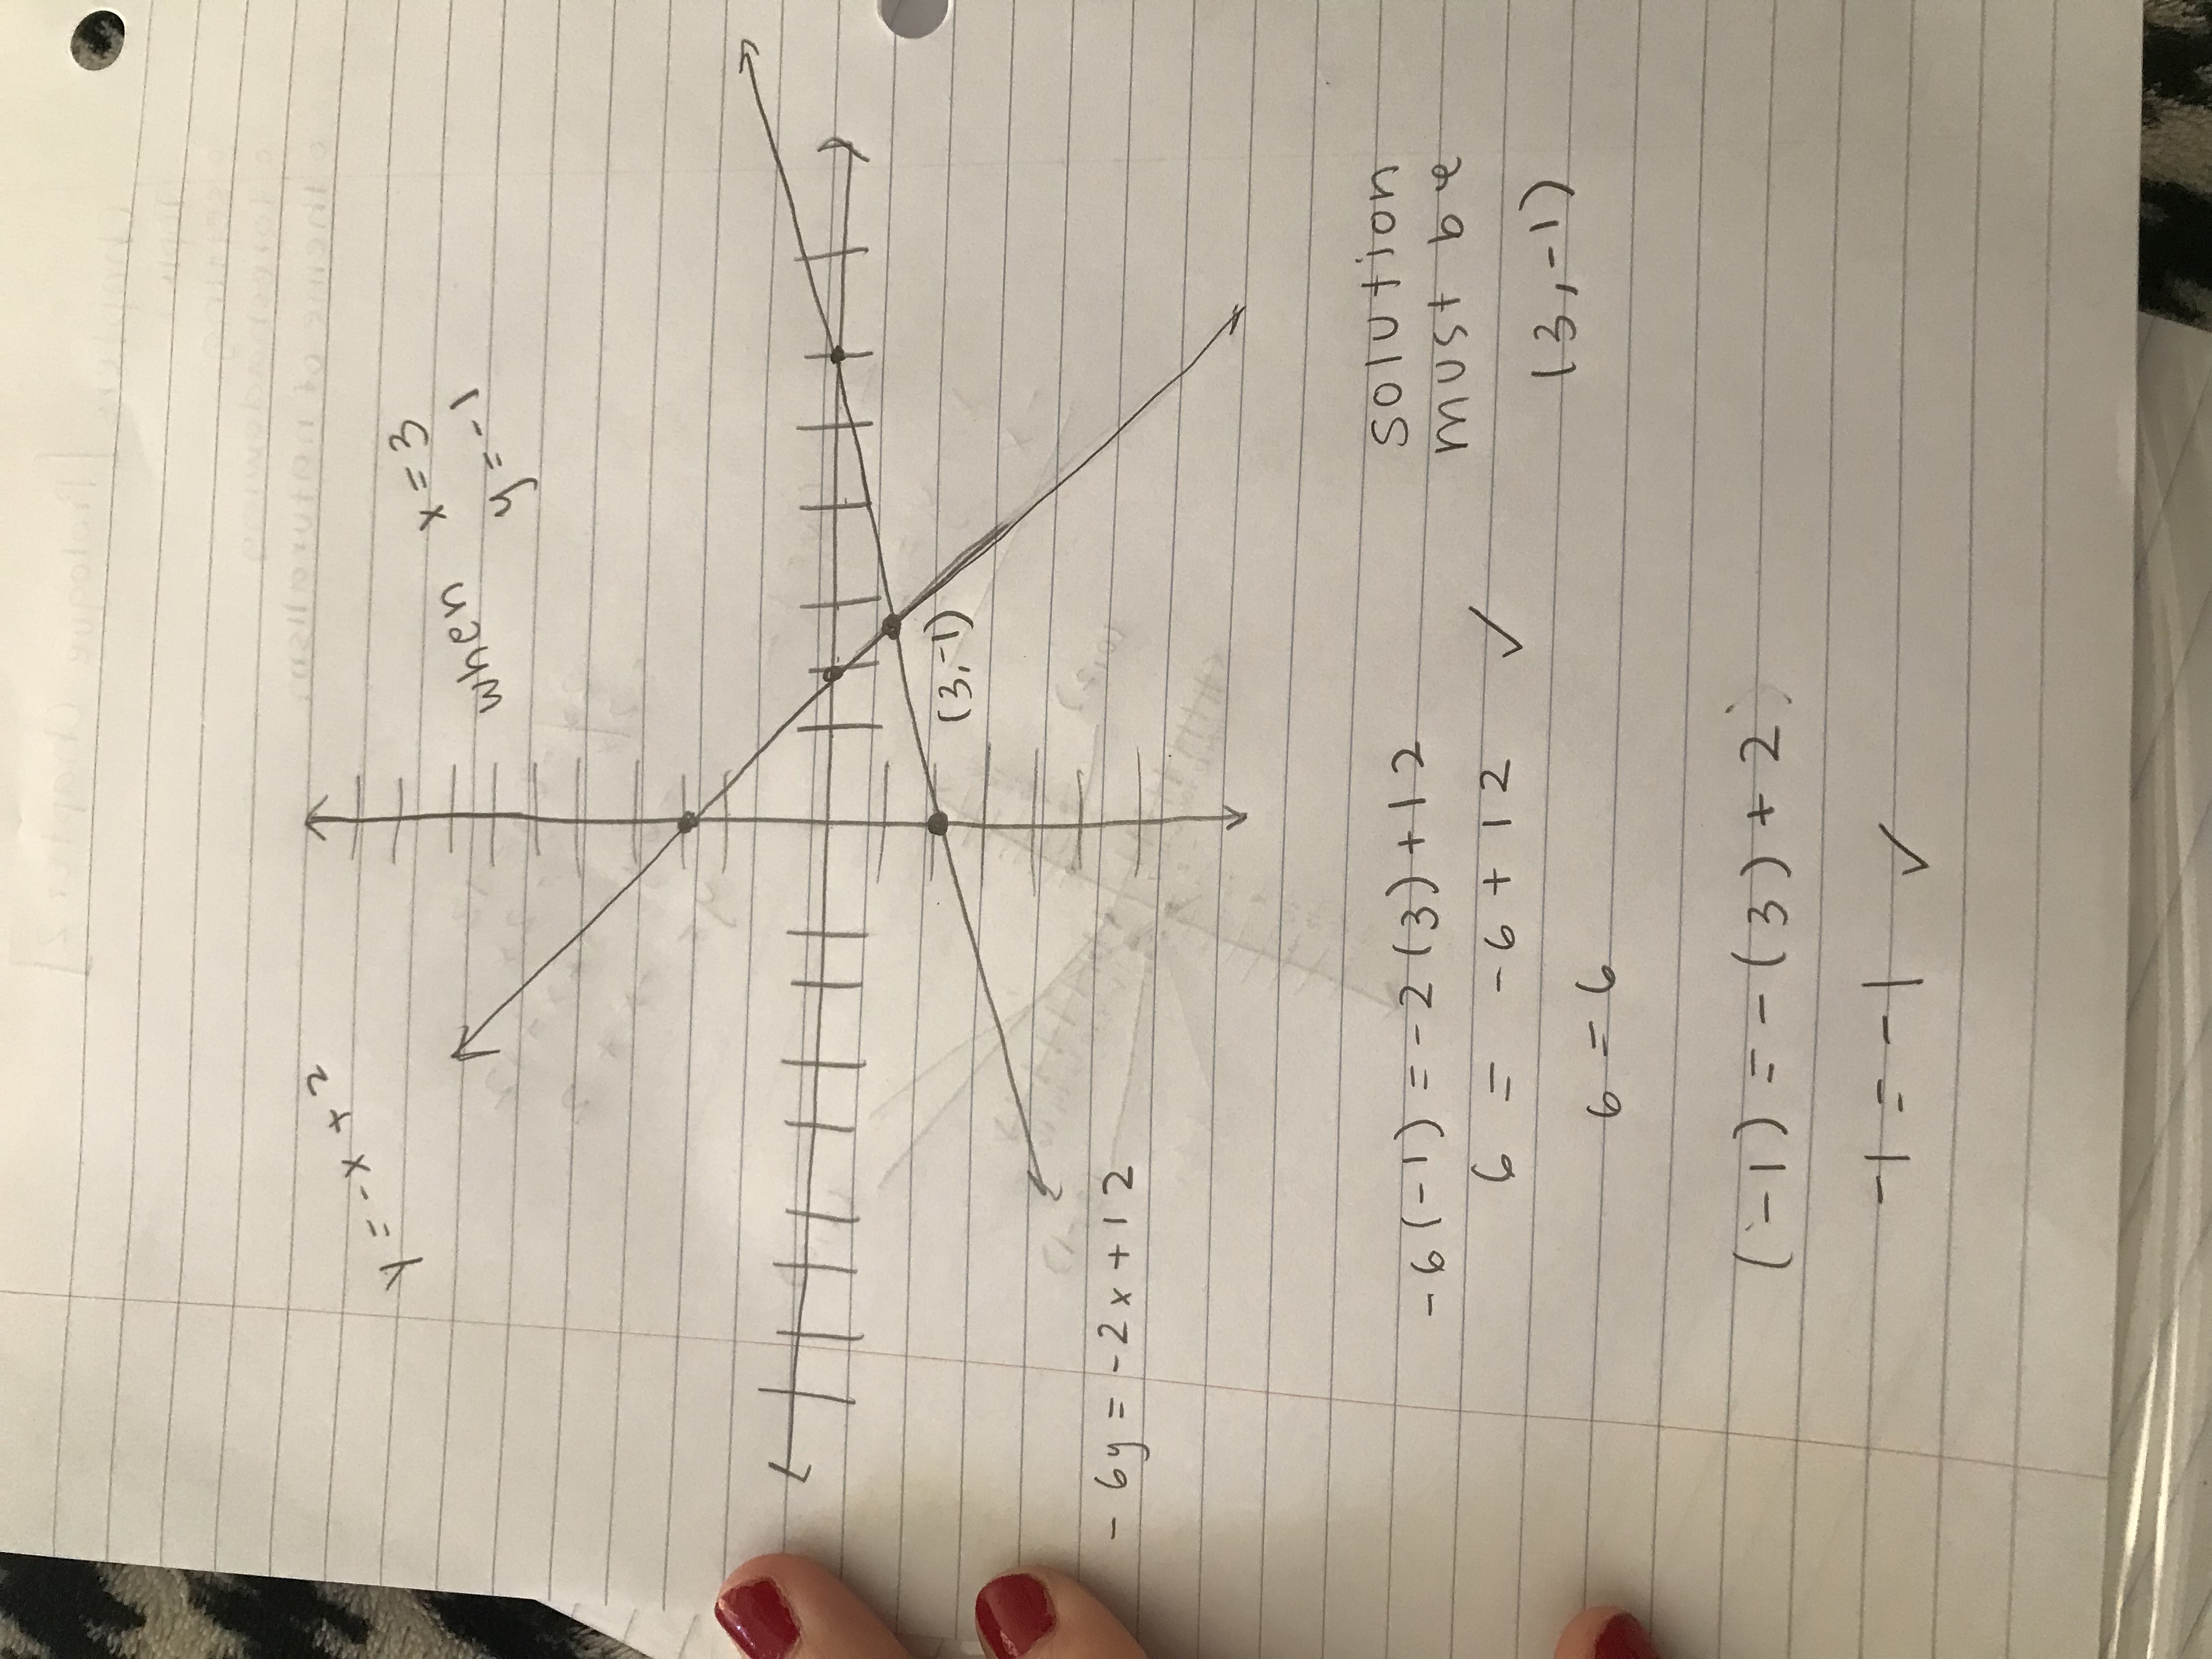 y = -x + 2
when x = 3
y = -1
(3,-1)
-6y = -2x + 12
-6(-1) = -2(3)+12
6 = -6 + 12 ✓
6 = 6
solution
must be
(3,-1)
(-1) = -(3) + 2)
-1 = -1 ✓